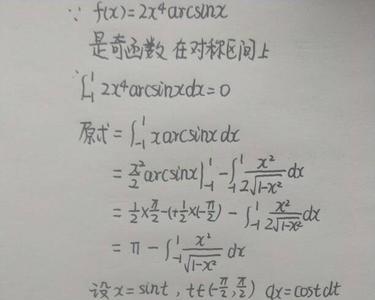 ∵ f(x)=2x⁴arcsinx
是奇函数 在对称区间上
∴ ∫₋₁¹ 2x⁴arcsinxdx=0
原式=∫₋₁¹ xarcsinxdx
= x²/2 arcsinx|₋₁¹ - ∫₋₁¹ x²/(2√(1-x²)) dx
= 1/2×π/2-(+1/2×(-π/2)) - ∫₋₁¹ x²/(2√(1-x²)) dx
= π - ∫₋₁¹ x²/√(1-x²) dx
设x=sint, t∈(-π/2,π/2) dx=costdt